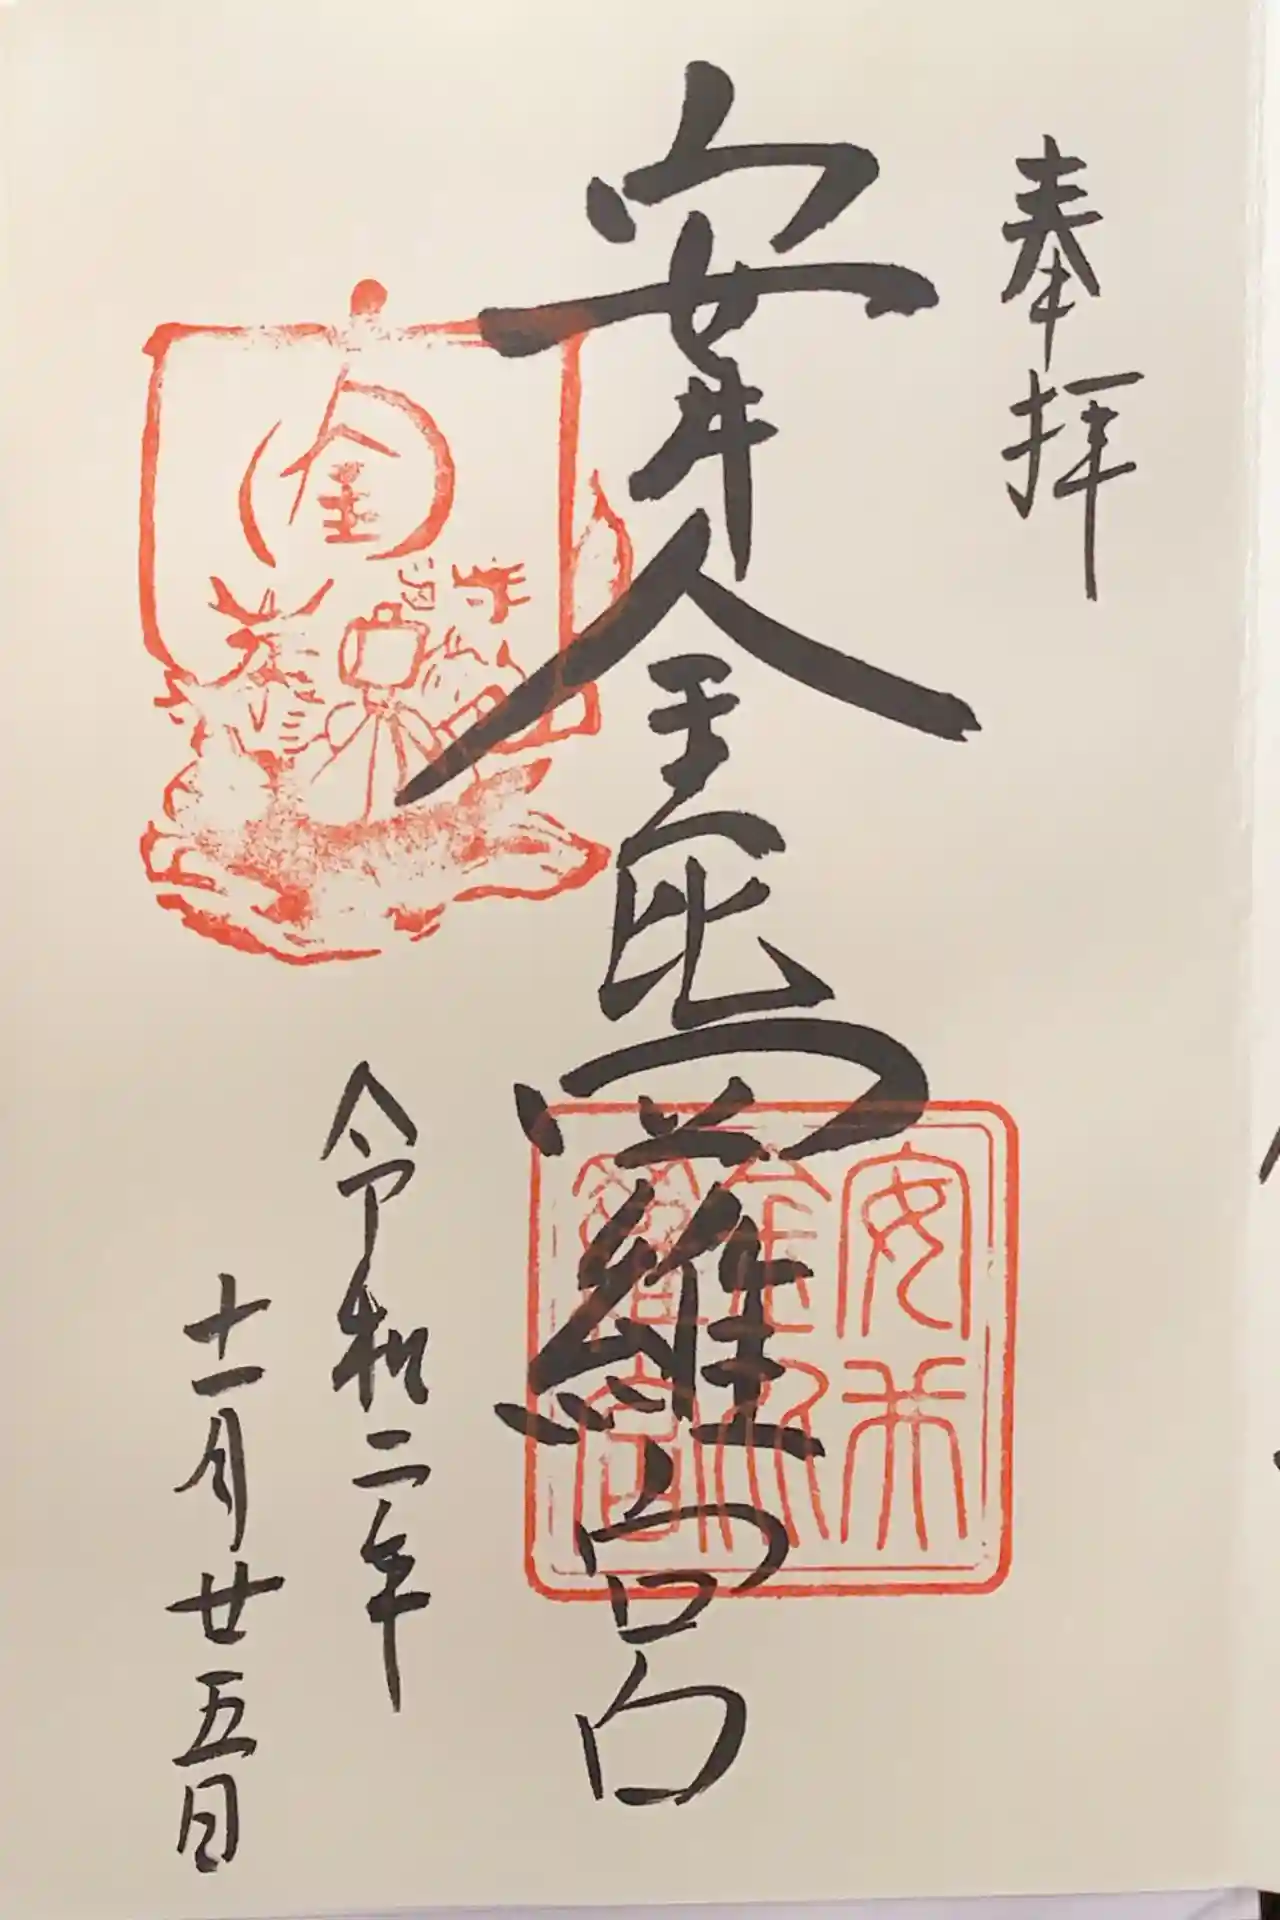 奉拝
安井金毘羅宮
令和二年
十一月廿五日
金
安井
金比
羅宮